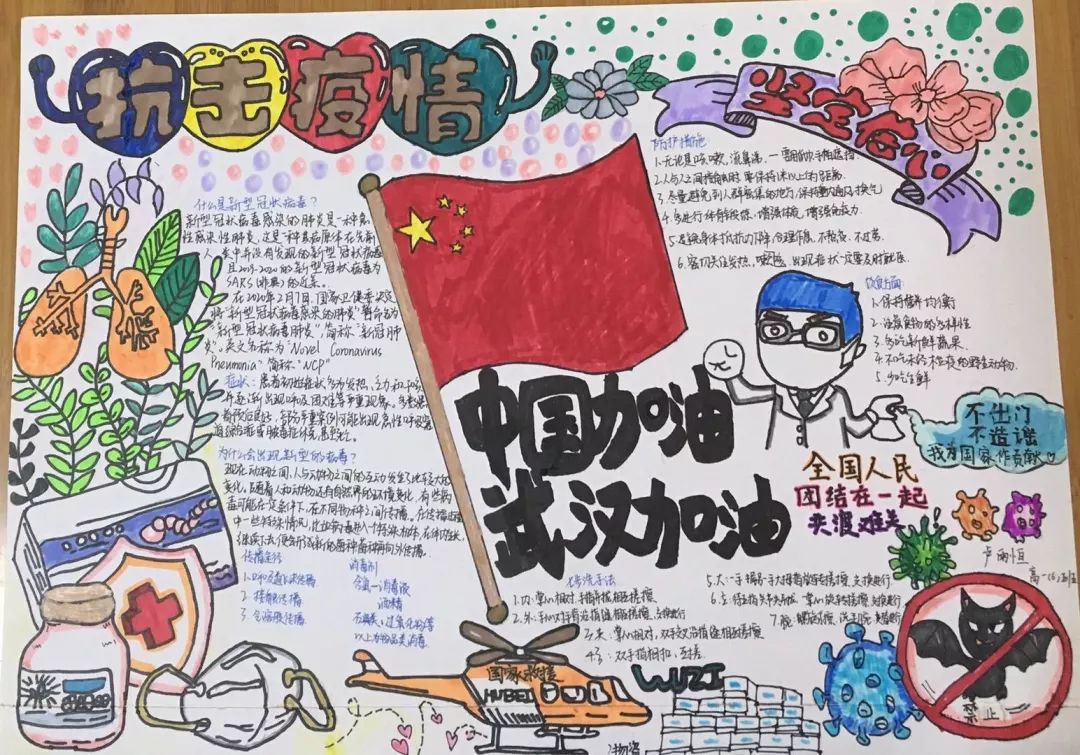 抗击疫情
坚定信心
什么是新型冠状病毒？
新型冠状病毒感染的肺炎是一种急
性感染性肺炎，这是一种其病原体在先前
人类中并没有发现的新型冠状病毒
且2019-2020的新型冠状病毒为
SARS(非典)的近亲。
在2020年2月7日，国家卫健委决定
将"新型冠状病毒感染的肺炎"暂命名为
"新型冠状病毒肺炎"简称"新冠肺
炎"，英文名称为"Novel Coronavirus
Pneumonia"简称"NCP"
症状：患者初始症状多为发热、乏力和干咳，
并逐渐出现呼吸困难等严重现象。多数患
者预后良好，部分严重案例可能出现急性呼吸窘
迫综合症或脓毒症休克，甚至死亡。
为什么会出现新型的病毒？
现在动物之间、人与动物之间的互动发生了比较大的
变化。随着人和动物还有自然界的环境变化，有些病
毒可能在一定条件下，在不同物种之间传播。在传播过程
中一些特殊情况，比如病毒形成一个特殊的株，在体内生长，
传播途径
1.呼吸道飞沫传播
2.接触传播
3.气溶胶传播
消毒剂
含氯—消毒液
酒精
以上均为品类消毒
防护措施
1.无论是咳嗽、流鼻涕，一
2.人与人之间接触时要保持1米以上的距离。
3.尽量避免到人群密集的地方，保持室内通风换气
4.多进行体育锻炼，增强体质，增强免疫力。
5.避免身体抵抗力下降，合理作息，不熬夜、不过劳。
6.密切关注发热、咳嗽，出现症状一定要及时就医。
饮食方面
1.保持营养均衡
2.注意食物的多样性
3.多吃新鲜蔬果
4.不吃未经检疫的野生动物
5.少吃生鲜
中国加油
武汉加油
不出门
不造谣
我为国家作贡献
全国人民
团结在一起
共渡难关
七步洗手法
1.内：掌心相对，手指并拢相互揉搓
2.外：手心对手背沿指缝相互揉搓，交换进行
3.夹：掌心相对，双手交叉沿指缝相互揉搓
4.弓：双手指相扣，互搓
5.大：一手握另一手大拇指旋转揉搓，交换进行
6.立：
7.腕：
国家救援
HUBEI
WUZI
物资
禁止